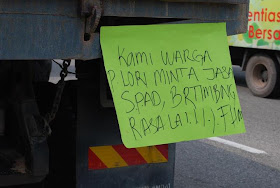 Kami WARGA
LORI MINTA JASA
SPAD, BRTIMBANG
RASA LA!!!,)
entias
Bersa